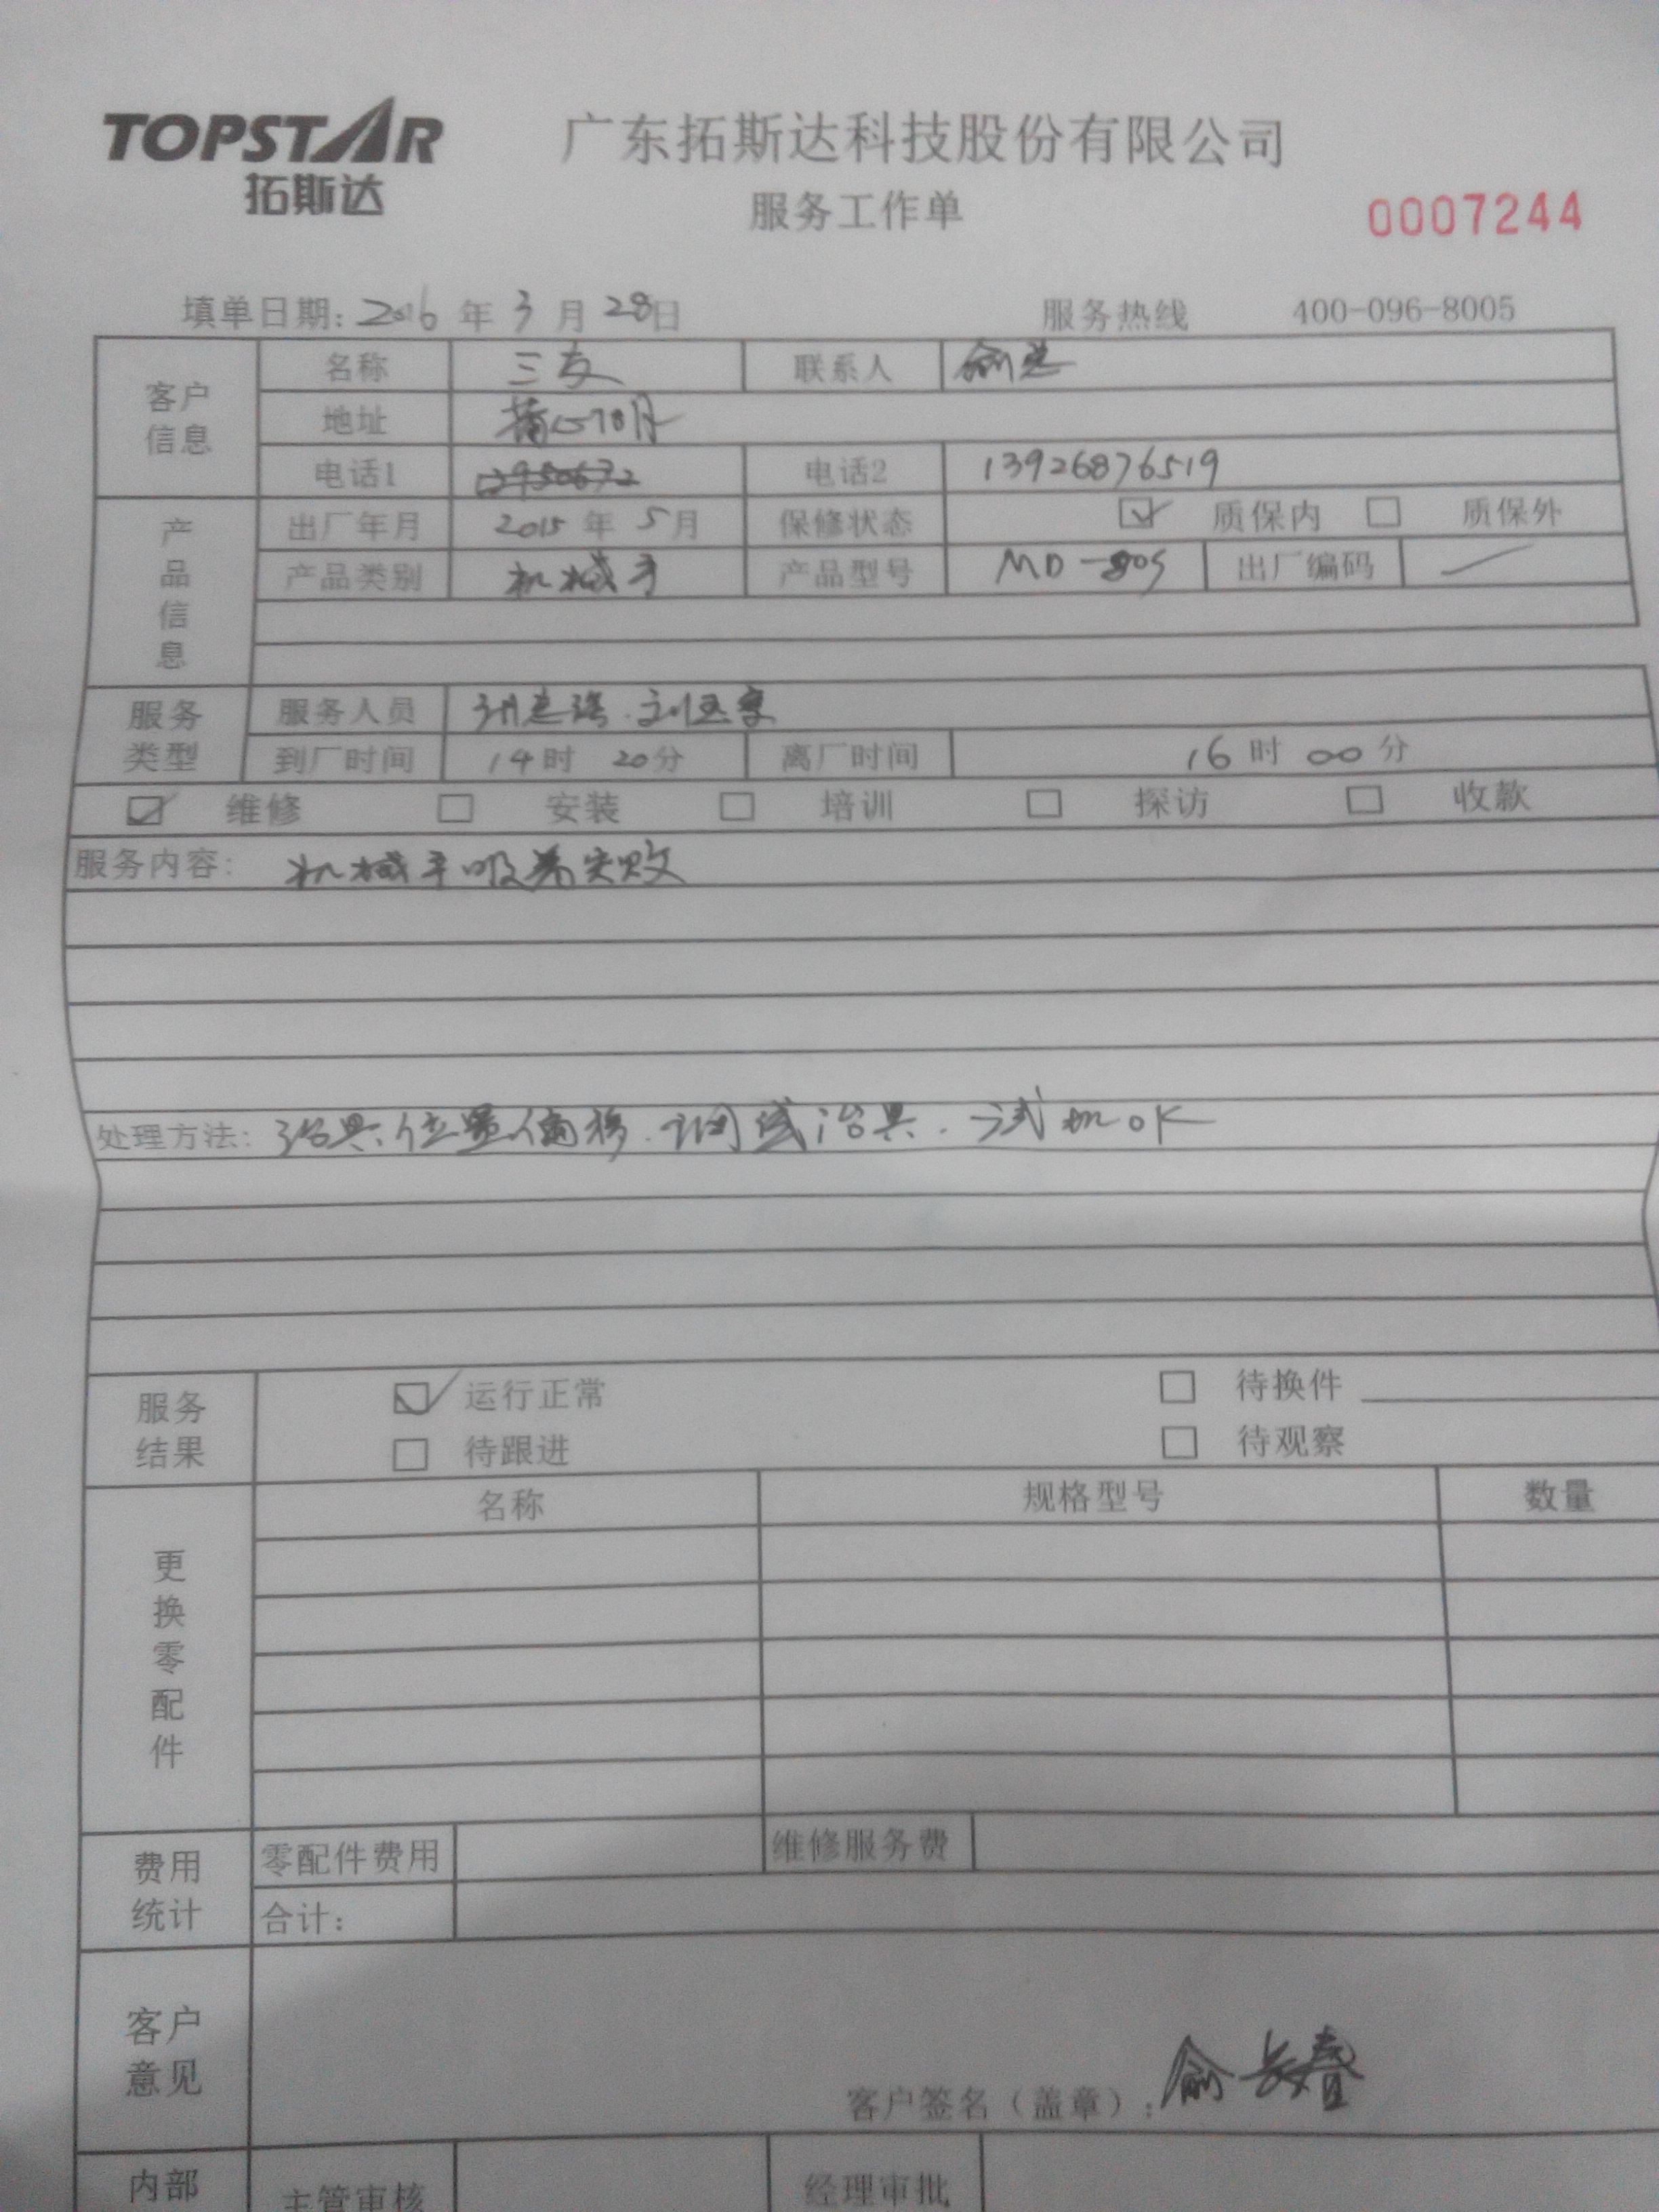 TOPSTAR
拓斯达
广东拓斯达科技股份有限公司
服务工作单
0007244
填单日期: 2016 年 3 月 28日
服务热线 400-096-8005
客户信息
名称 三友 联系人
地址
电话1 电话2 13926876519
产品信息
出厂年月 2015 年 5月 保修状态 ☑ 质保内 □ 质保外
产品类别 机械手 产品型号 MD-80S 出厂编码
服务类型
服务人员
到厂时间 14时 20分 离厂时间 16时 00分
☑ 维修 □ 安装 □ 培训 □ 探访 □ 收款
服务内容: 机械手吸养失败
处理方法: 治具位置偏移.调试治具.试机OK
服务结果
☑ 运行正常 □ 待换件
□ 待跟进 □ 待观察
更换零配件
名称 规格型号 数量
费用统计
零配件费用 维修服务费
合计:
客户意见
客户签名（盖章）: 俞长春
内部
主管审核 经理审批